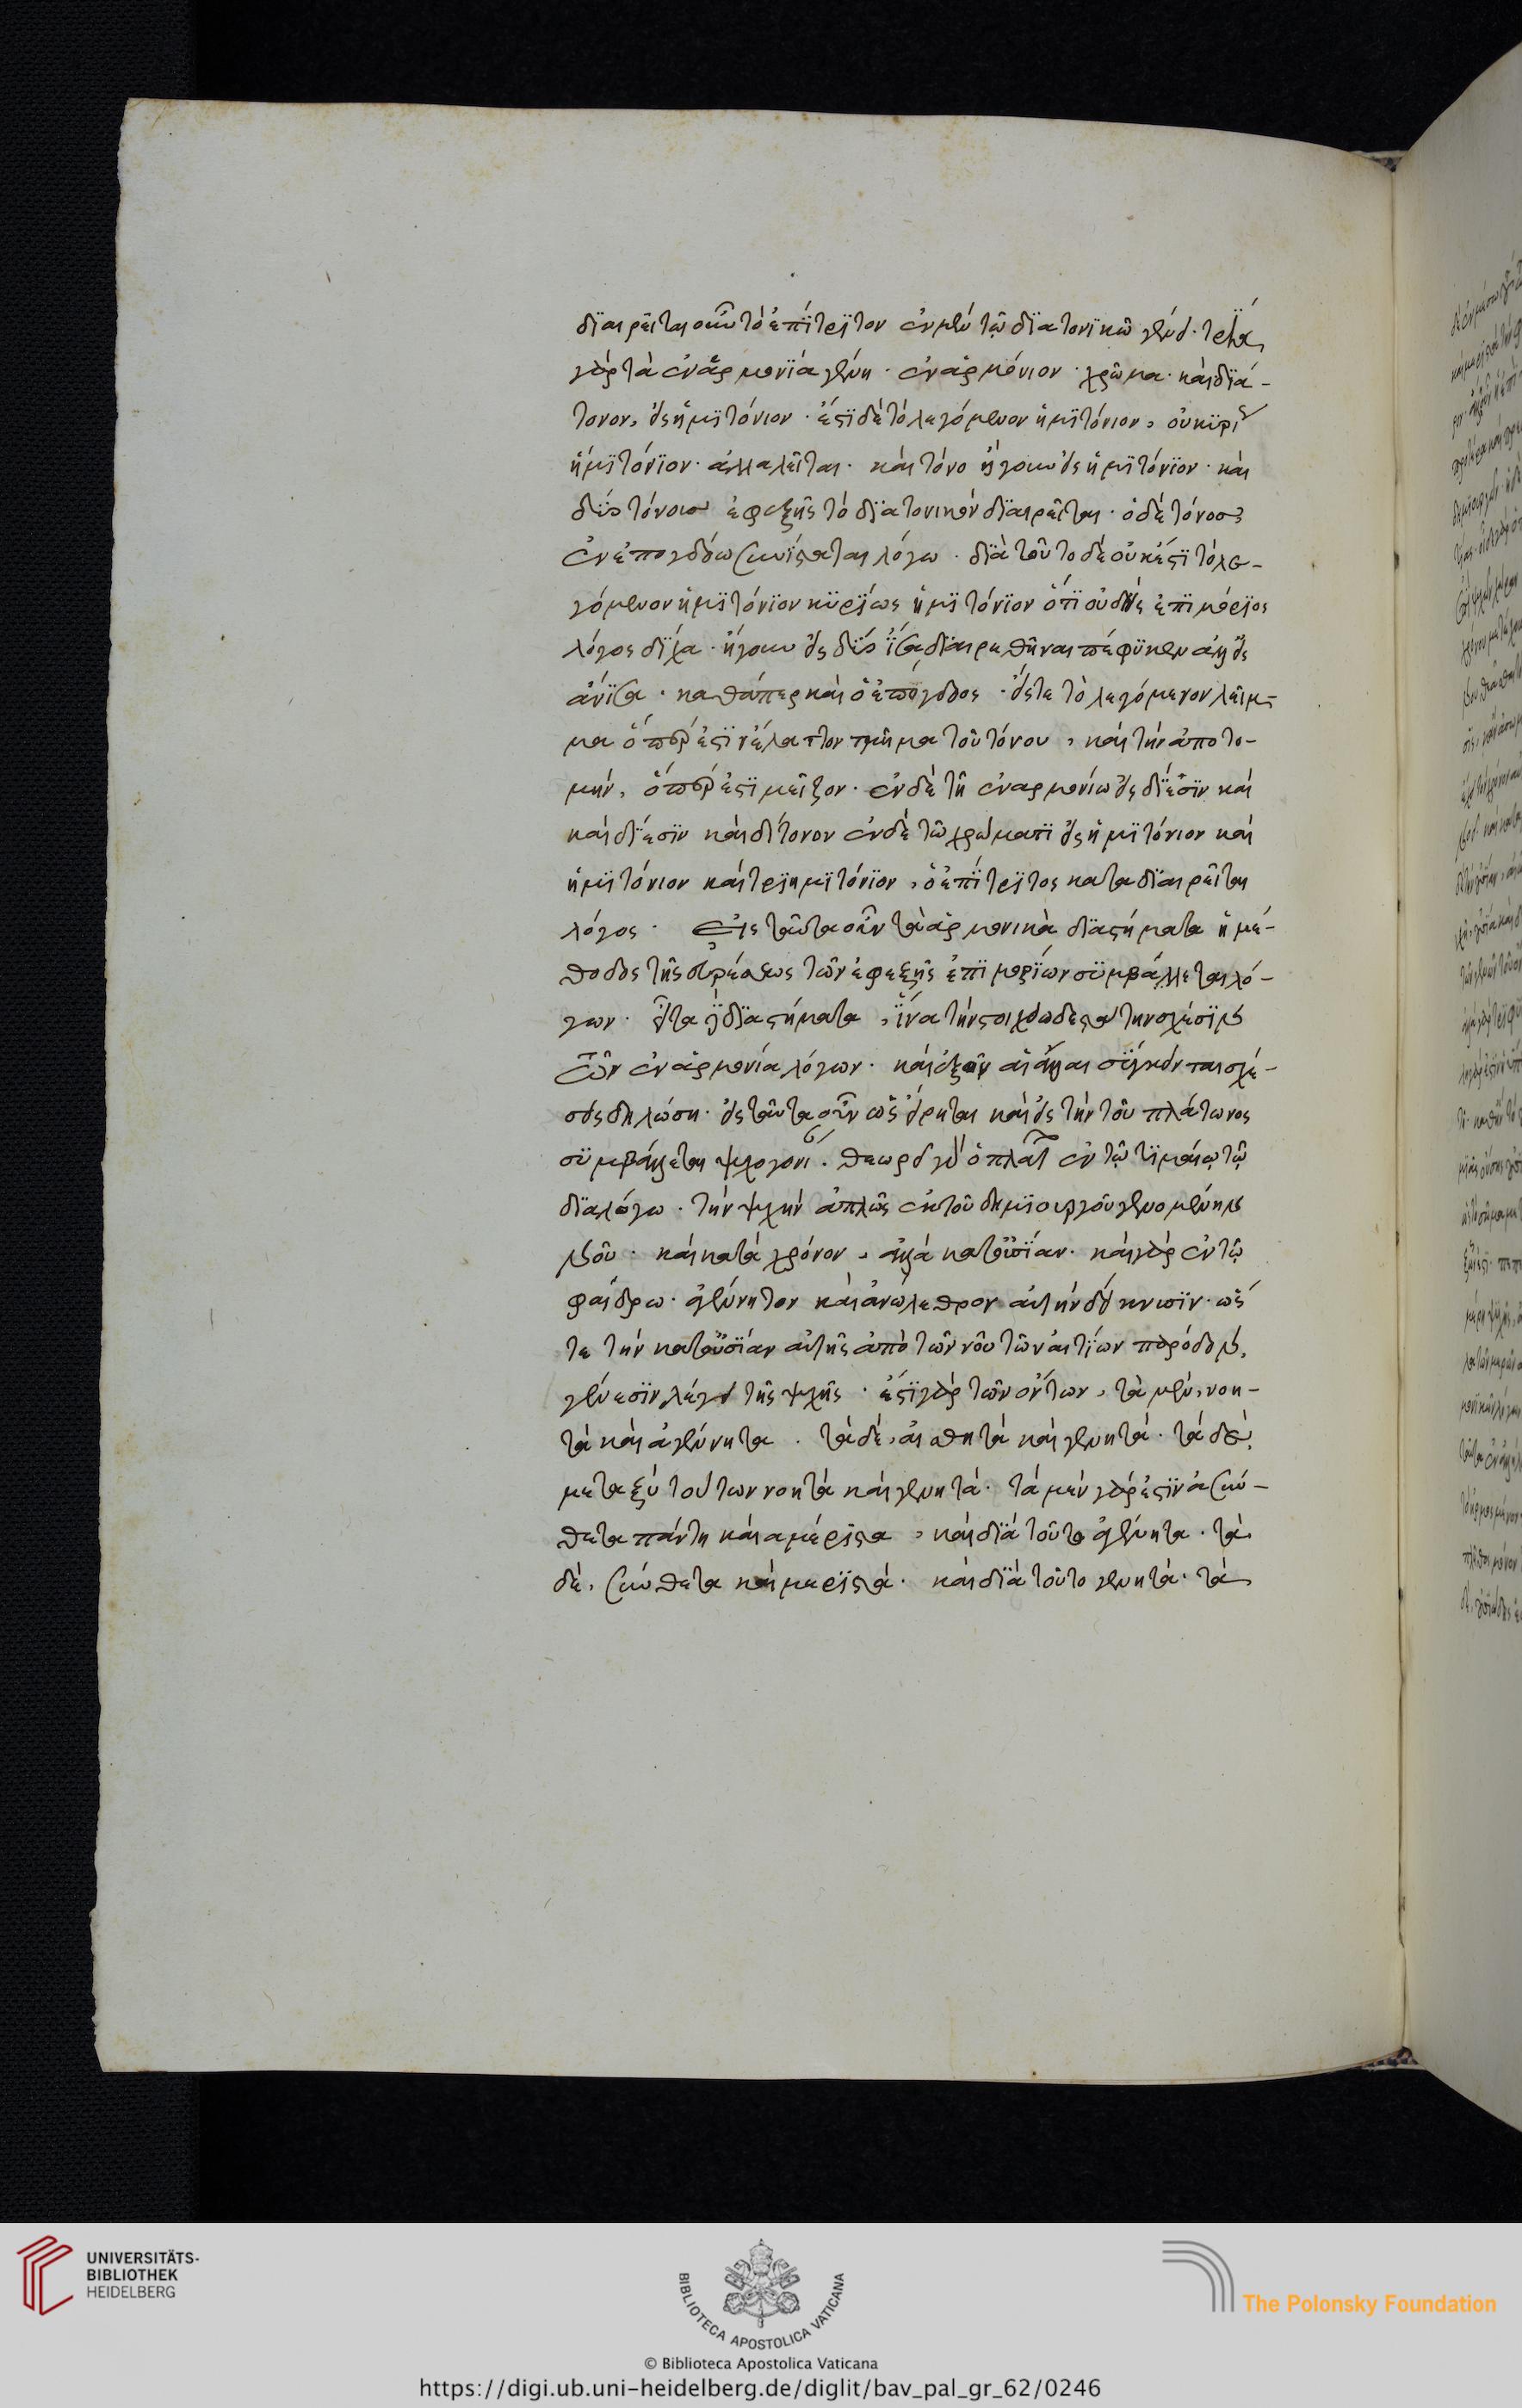 διαιρεῖται οὖν τὸ ἐπίτριτον ἐν μὲν τῷ διατονικῷ γένει· τρία
γὰρ τὰ ἐναρμονία γένη· ἐναρμόνιον· χρῶμα· καὶ διά-
τονον, εἰς ἡμιτόνιον· ἔστι δὲ τὸ λεγόμενον ἡμιτόνιον, οὐ κυρί
ἡμιτόνιον· ἀλλα λεῖται· καὶ τόνο ἤγουν εἰς ἡμιτόνιον· καὶ
δύο τόνους ἐφεξῆς τὸ διατονικὸν διαιρεῖται· ὁ δὲ τόνος
ἐν ἐπογδόω συνίσταται λόγω· διὰ τοῦτο δὲ οὐκ ἔστι τὸ λε-
γόμενον ἡμιτόνιον κυρίως ἡμιτόνιον ὅτι οὐδεὶς ἐπιμόριος
λόγος δίχα· ἤγουν εἰς δύο ἴσα διαιρεθῆναι πέφυκεν ἀλλ' εἰς
ἄνισα· καθάπερ καὶ ὁ ἐπόγδοος· εἴς τε τὸ λεγόμενον λεῖμ-
μα ὅπερ ἐστὶν ἔλαττον τμῆμα τοῦ τόνου, καὶ τὴν ἀποτο-
μήν, ὅπερ ἐστὶ μεῖζον· ἐν δὲ τῇ ἐναρμονίω εἰς δίεσιν καὶ
καὶ δίεσιν καὶ δίτονον ἐν δὲ τῶ χρώματι εἰς ἡμιτόνιον καὶ
ἡμιτόνιον καὶ τριημιτόνιον, ὁ ἐπίτριτος καταδιαιρεῖται
λόγος· Εἰς ταῦτα οὖν τὰ ἁρμονικὰ διαστήματα ἡ μέ-
θοδος τῆς εὑρέσεως τῶν ἐφεξῆς ἐπιμορίων συμβάλλεται λό-
γων· διαστήματα, ἵνα τὴν στοιχειωδεστάτην σχέσιν
τῶν ἐναρμονία λόγων· καὶ ἐξ ὧν αἱ ἄλλαι σύγκεινται σχέ-
σεις δηλώση· εἰς ταῦτα οὖν ὡς εἴρηται καὶ εἰς τὴν τοῦ πλάτωνος
συμβάλλεται ψυχογονί· θεωρεῖ γὰρ ὁ πλατ ἐν τῷ τιμαίῳ τῷ
διαλόγω· τὴν ψυχὴν ἁπλῶς ἐκ τοῦ δημιουργοῦ γενομένην
κατὰ χρόνον, ἀλλὰ κατ' οὐσίαν· καὶ γὰρ ἐν τῷ
φαίδρω· ἀγένητον καὶ ἀνώλεθρον αὐτὴν δείκνυσιν· ὥσ
τε τὴν κατ' οὐσίαν αὐτῆς ἀπὸ τῶν νοῦ τῶν αἰτίων πρόοδον,
γένεσιν λέγει τῆς ψυχῆς· ἔστι γὰρ τῶν ὄντων, τὰ μέν, νοη-
τὰ καὶ ἀγένητα· τὰ δέ, αἰσθητὰ καὶ γενητά· τὰ δὲ,
μεταξὺ τούτων νοητὰ καὶ γενητά· τὰ μὲν γάρ ἐστιν ἀσύν-
θετα πάντη καὶ ἀμέριστα, καὶ διὰ τοῦτο ἀγένητα· τὰ
δέ, σύνθετα καὶ μεριστά· καὶ διὰ τοῦτο γενητά· τὰ
UNIVERSITÄTS-
BIBLIOTHEK
HEIDELBERG
BIBLIOTECA APOSTOLICA VATICANA
The Polonsky Foundation
© Biblioteca Apostolica Vaticana
https://digi.ub.uni-heidelberg.de/diglit/bav_pal_gr_62/0246